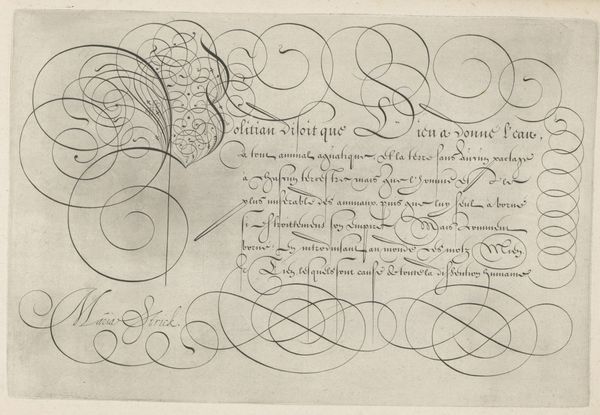 Politian disoit que Dieu a donne l'eau,
a tout animal aquatique, et la terre sans aucun partage
a chascun terrestre mais que l'homme est le
plus miserable des animaux puis que luy seul a borné
si estroittement son empire Mais comment
borné en introduisant au monde ces motz Mien
& Tien lesquels sont cause de toute la dissention humaine
Maria Strick.